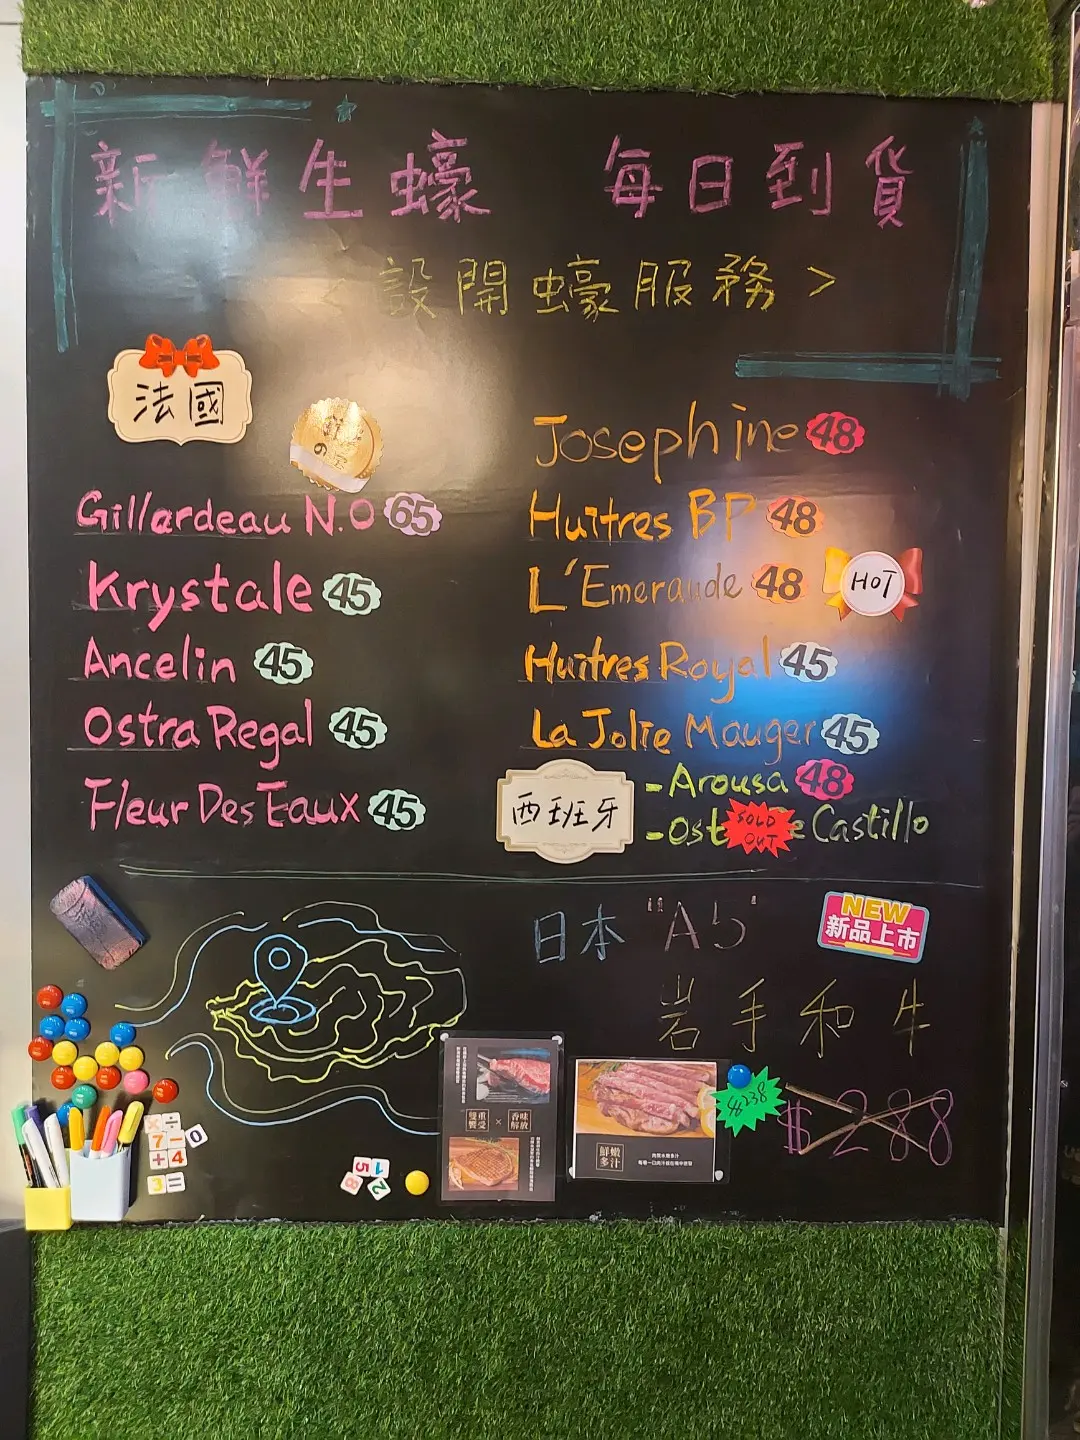 新鮮生蠔 每日到貨
<設開蠔服務>
法國
Gillardeau N.O 65
Krystale 45
Ancelin 45
Ostra Regal 45
Fleur Des Eaux 45
Josephine 48
Huîtres BP 48
L'Emeraude 48
HOT
Huîtres Royal 45
La Jolie Mauger 45
西班牙
-Arousa 48
-Ost e Castillo
SOLD OUT
日本 "A5"
NEW
新品上市
岩手和牛
$288
$238
雙重饗受 × 香味解放
鮮嫩多汁
× ÷
7 - 0
+ 4
3 =
5 1
8 2